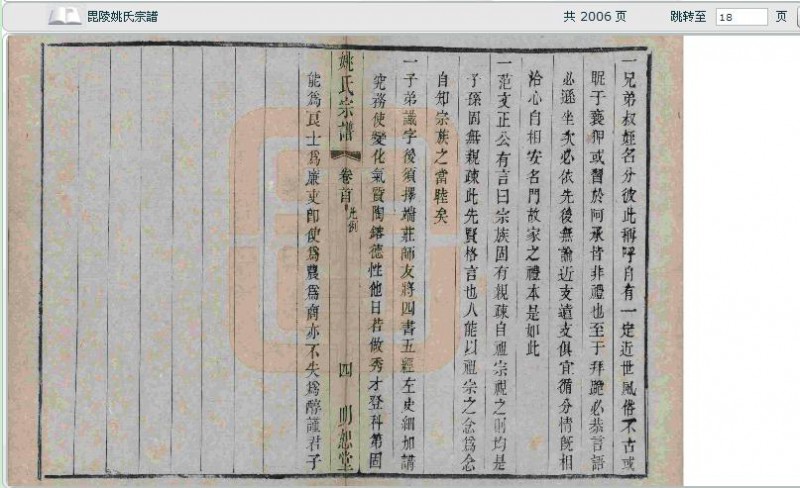 毘陵姚氏宗譜
共 2006 页
跳转至 18 页
一兄弟叔姪名分彼此稱呼自有一定近世風俗不古或
昵于褻狎或習於阿承皆非禮也至于拜跪必恭言語
必遜坐次必依先後無論近支遠支俱宜循分情既相
洽心自相安名門故家之禮本是如此
一范文正公有言曰宗族固有親疎自祖宗視之則均是
子孫固無親疎此先賢格言也人能以祖宗之念為念
自知宗族之當睦矣
一子弟識字後須擇端莊師友將四書五經左史細加講
究務使變化氣質陶鎔德性他日若做秀才登科第固
姚氏宗譜 卷首 凡例 四 明恕堂
能為良士為廉吏即使為農為商亦不失為醇謹君子